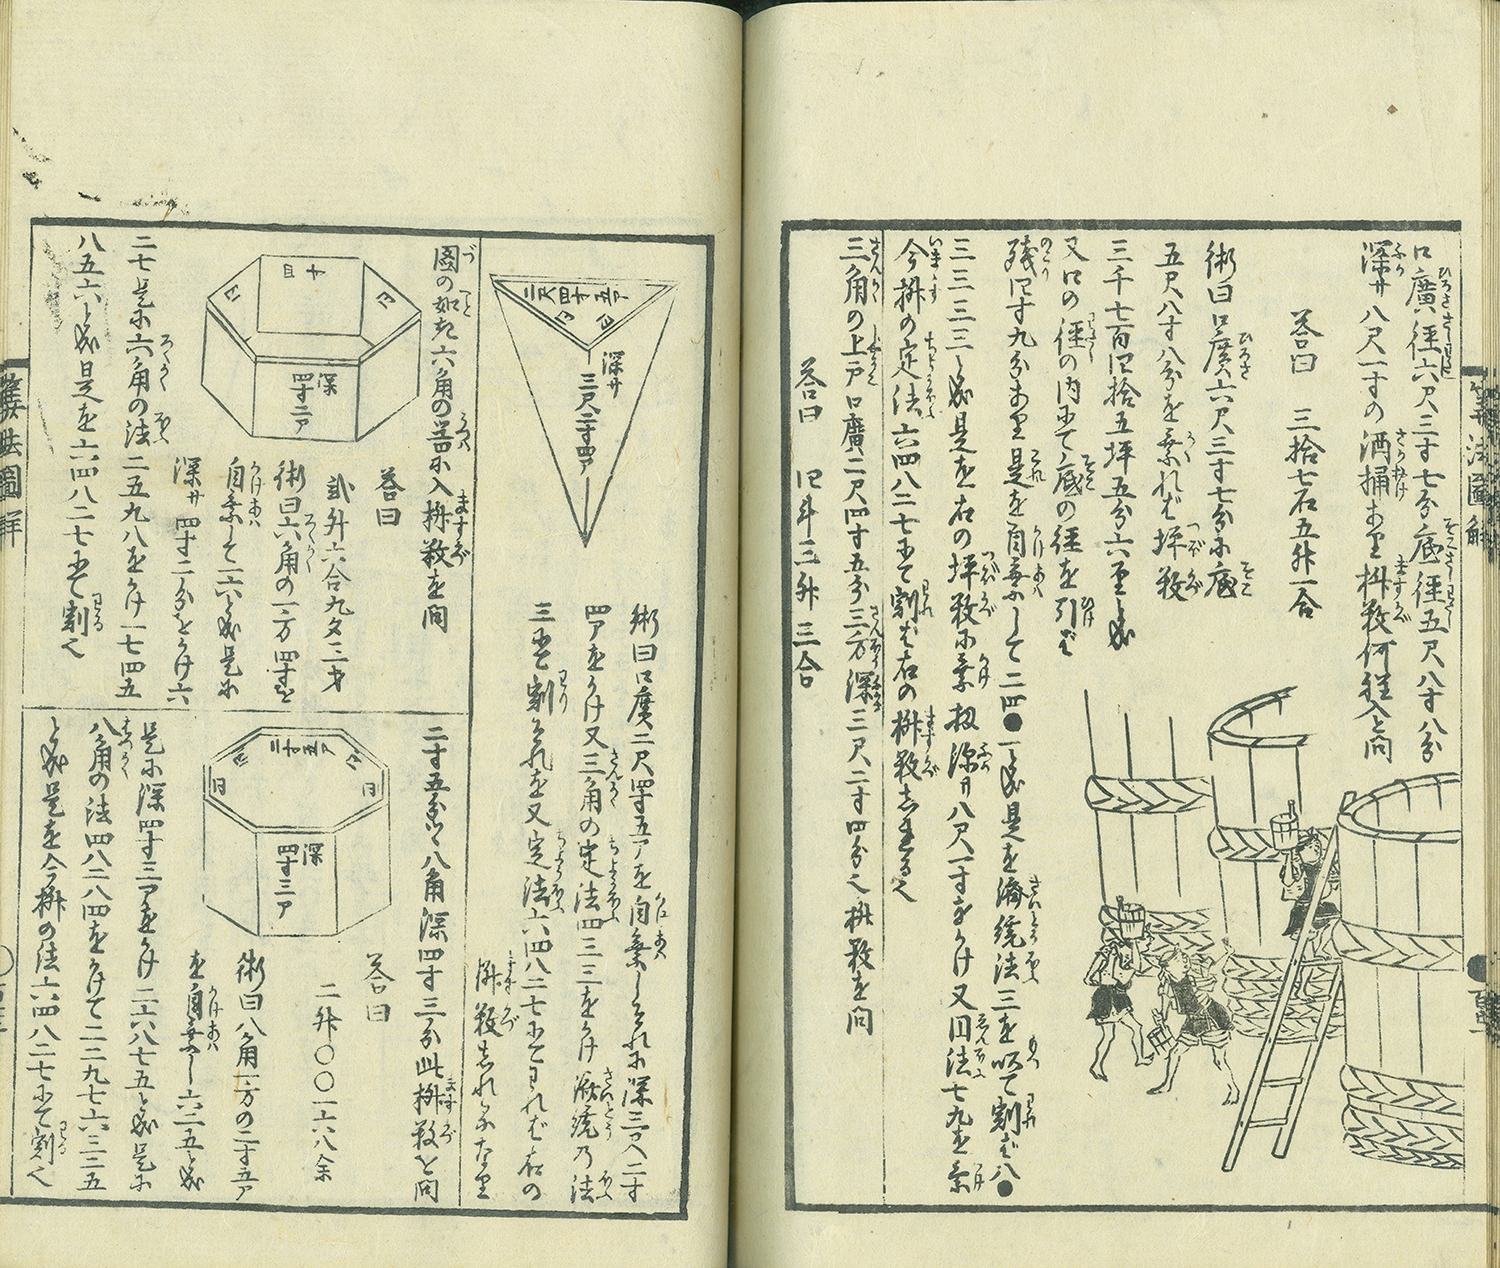 口廣徑六尺三寸七分底徑五尺八寸八分
深サ八尺一寸の酒桶あり桝数何程入と問
荅曰 三拾七石五升一合
術曰口廣六尺三寸七分に底
五尺八寸八分を乗れば坪数
三千七百四拾五坪五分六里と成
又口の徑の内にて底の徑を引ば
残四寸九分あり是を自乗して二四●一と成是を済統法三を以て割ば八●
三三三三と成是を右の坪数に乗扨深サ八尺一寸をかけ又円法七九を乗
今桝の定法六四八二七にて割ば右の桝数しるゝ也
三角の上戸口廣二尺四寸五分三方深三尺二寸四分也桝数を問
荅曰 四斗三升三合
三尺四寸五ア
深サ
三尺二寸四ア
術曰口廣二尺四寸五アを自乗しこれに深三尺二寸
四アをかけ又三角の定法四三三をかけ済統乃法
三にて割これを又定法六四八二七にてわれば右の
桝数しれるなり
圖の如き六角の器に入桝数を問
四寸
深
四寸二ア
荅曰
弐升六合九夕三才
術曰六角の一方四寸を
自乗して一六と成是に
深サ四寸二分をかけ六
二七是に六角の法二五九八をかけ一七四五
八五六と成是を六四八二七にて割也
二寸五分ヅヽ八角深四寸三分此桝数を問
二寸五ア
深
四寸三ア
荅曰
二升〇〇一六八余
術曰八角一方の二寸五ア
を自乗し六二五と成
是に深四寸三アをかけ二六八七五と成是に
八角の法四八二八四をかけて一二九七六三二五
と成是を今桝の法六四八二七にて割也
算法圖解